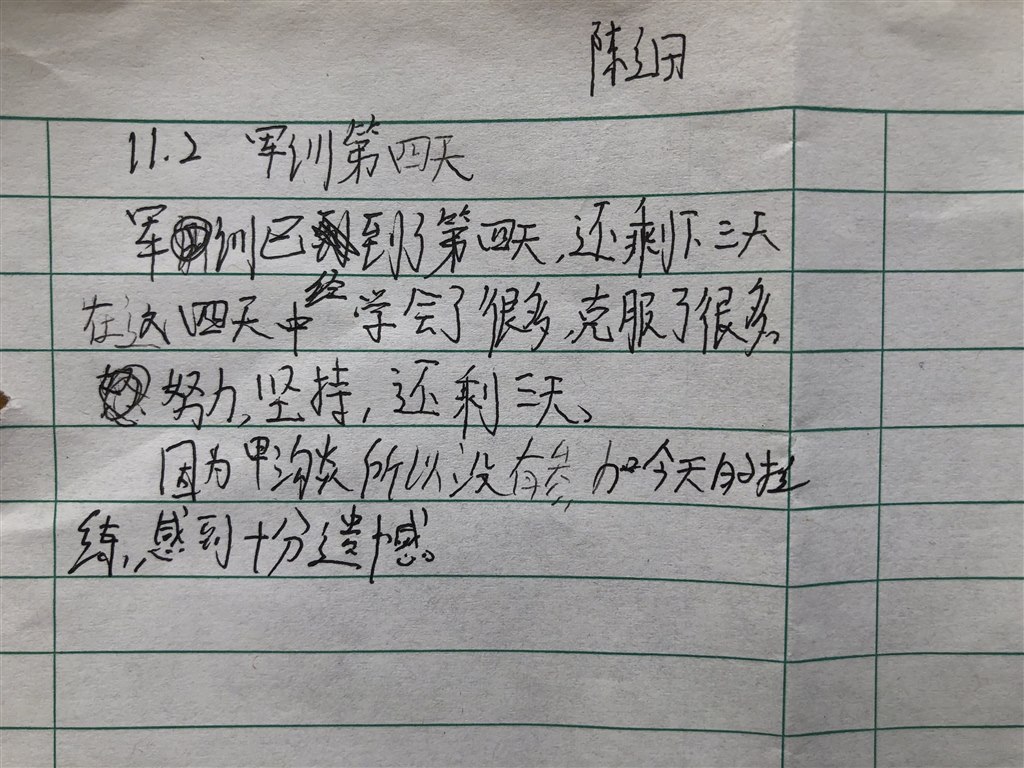 陈
11.2 军训第四天
军训已到了第四天,还剩下三天
在这四天中经学会了很多,克服了很多,
努力,坚持,还剩三天、
因为甲沟炎所以没有参加今天的拉
练,感到十分遗憾。